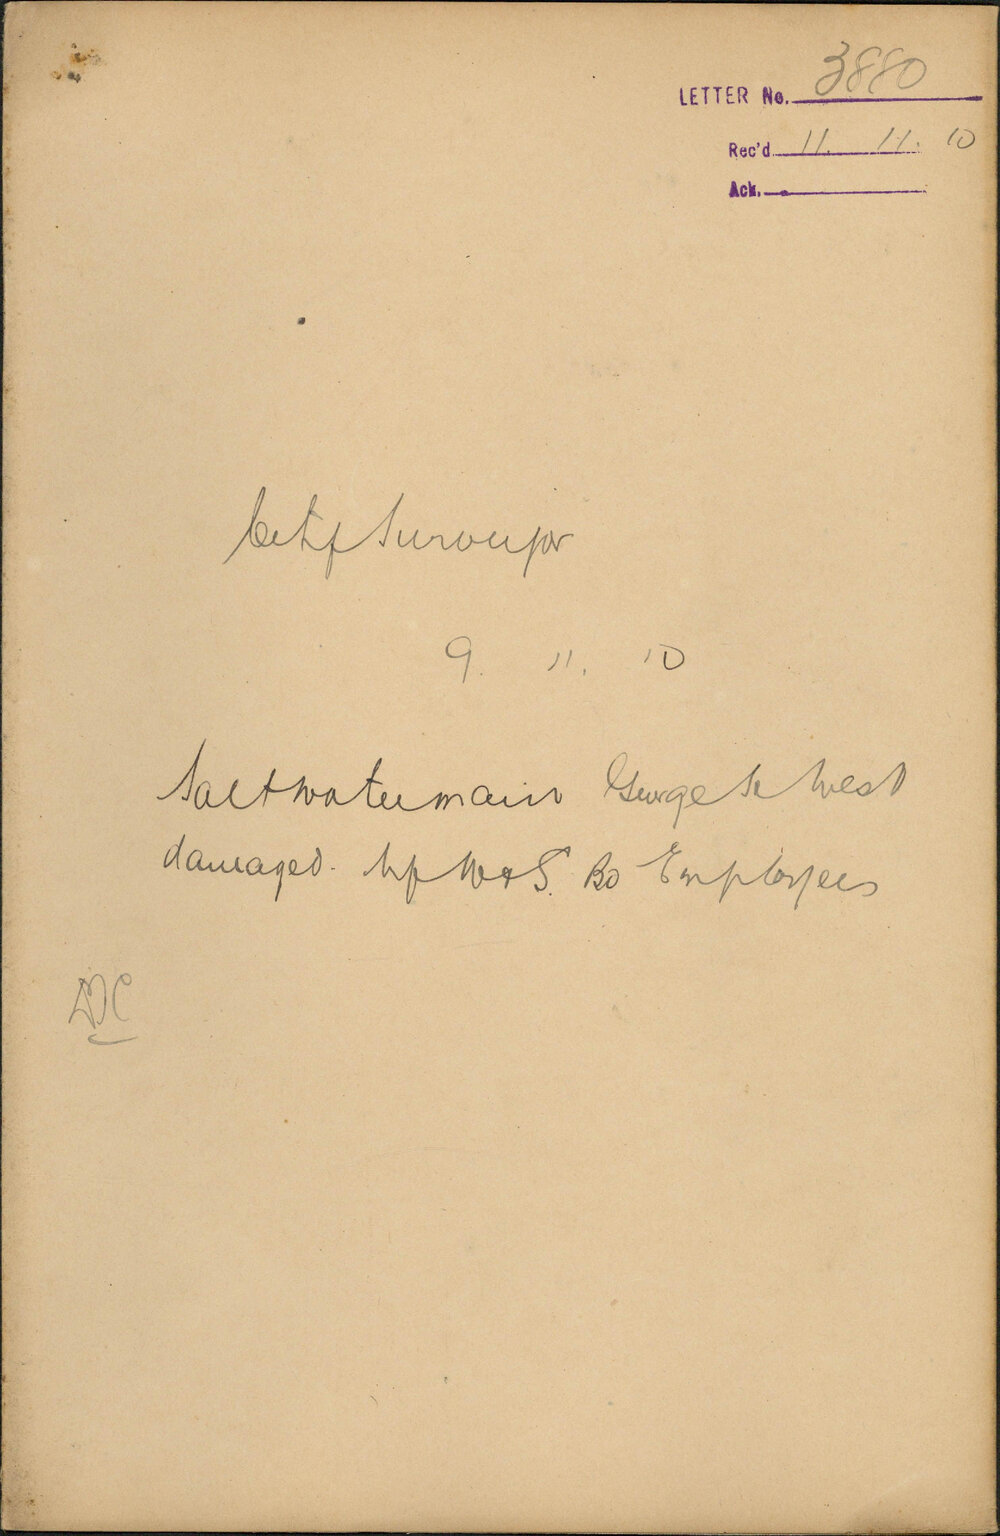 LETTER No. 3880
Rec'd 11. 11. 10
Ack.
City Surveyor
9. 11. 10
Saltwater main George St West
damaged. by W & S. Bd Employees